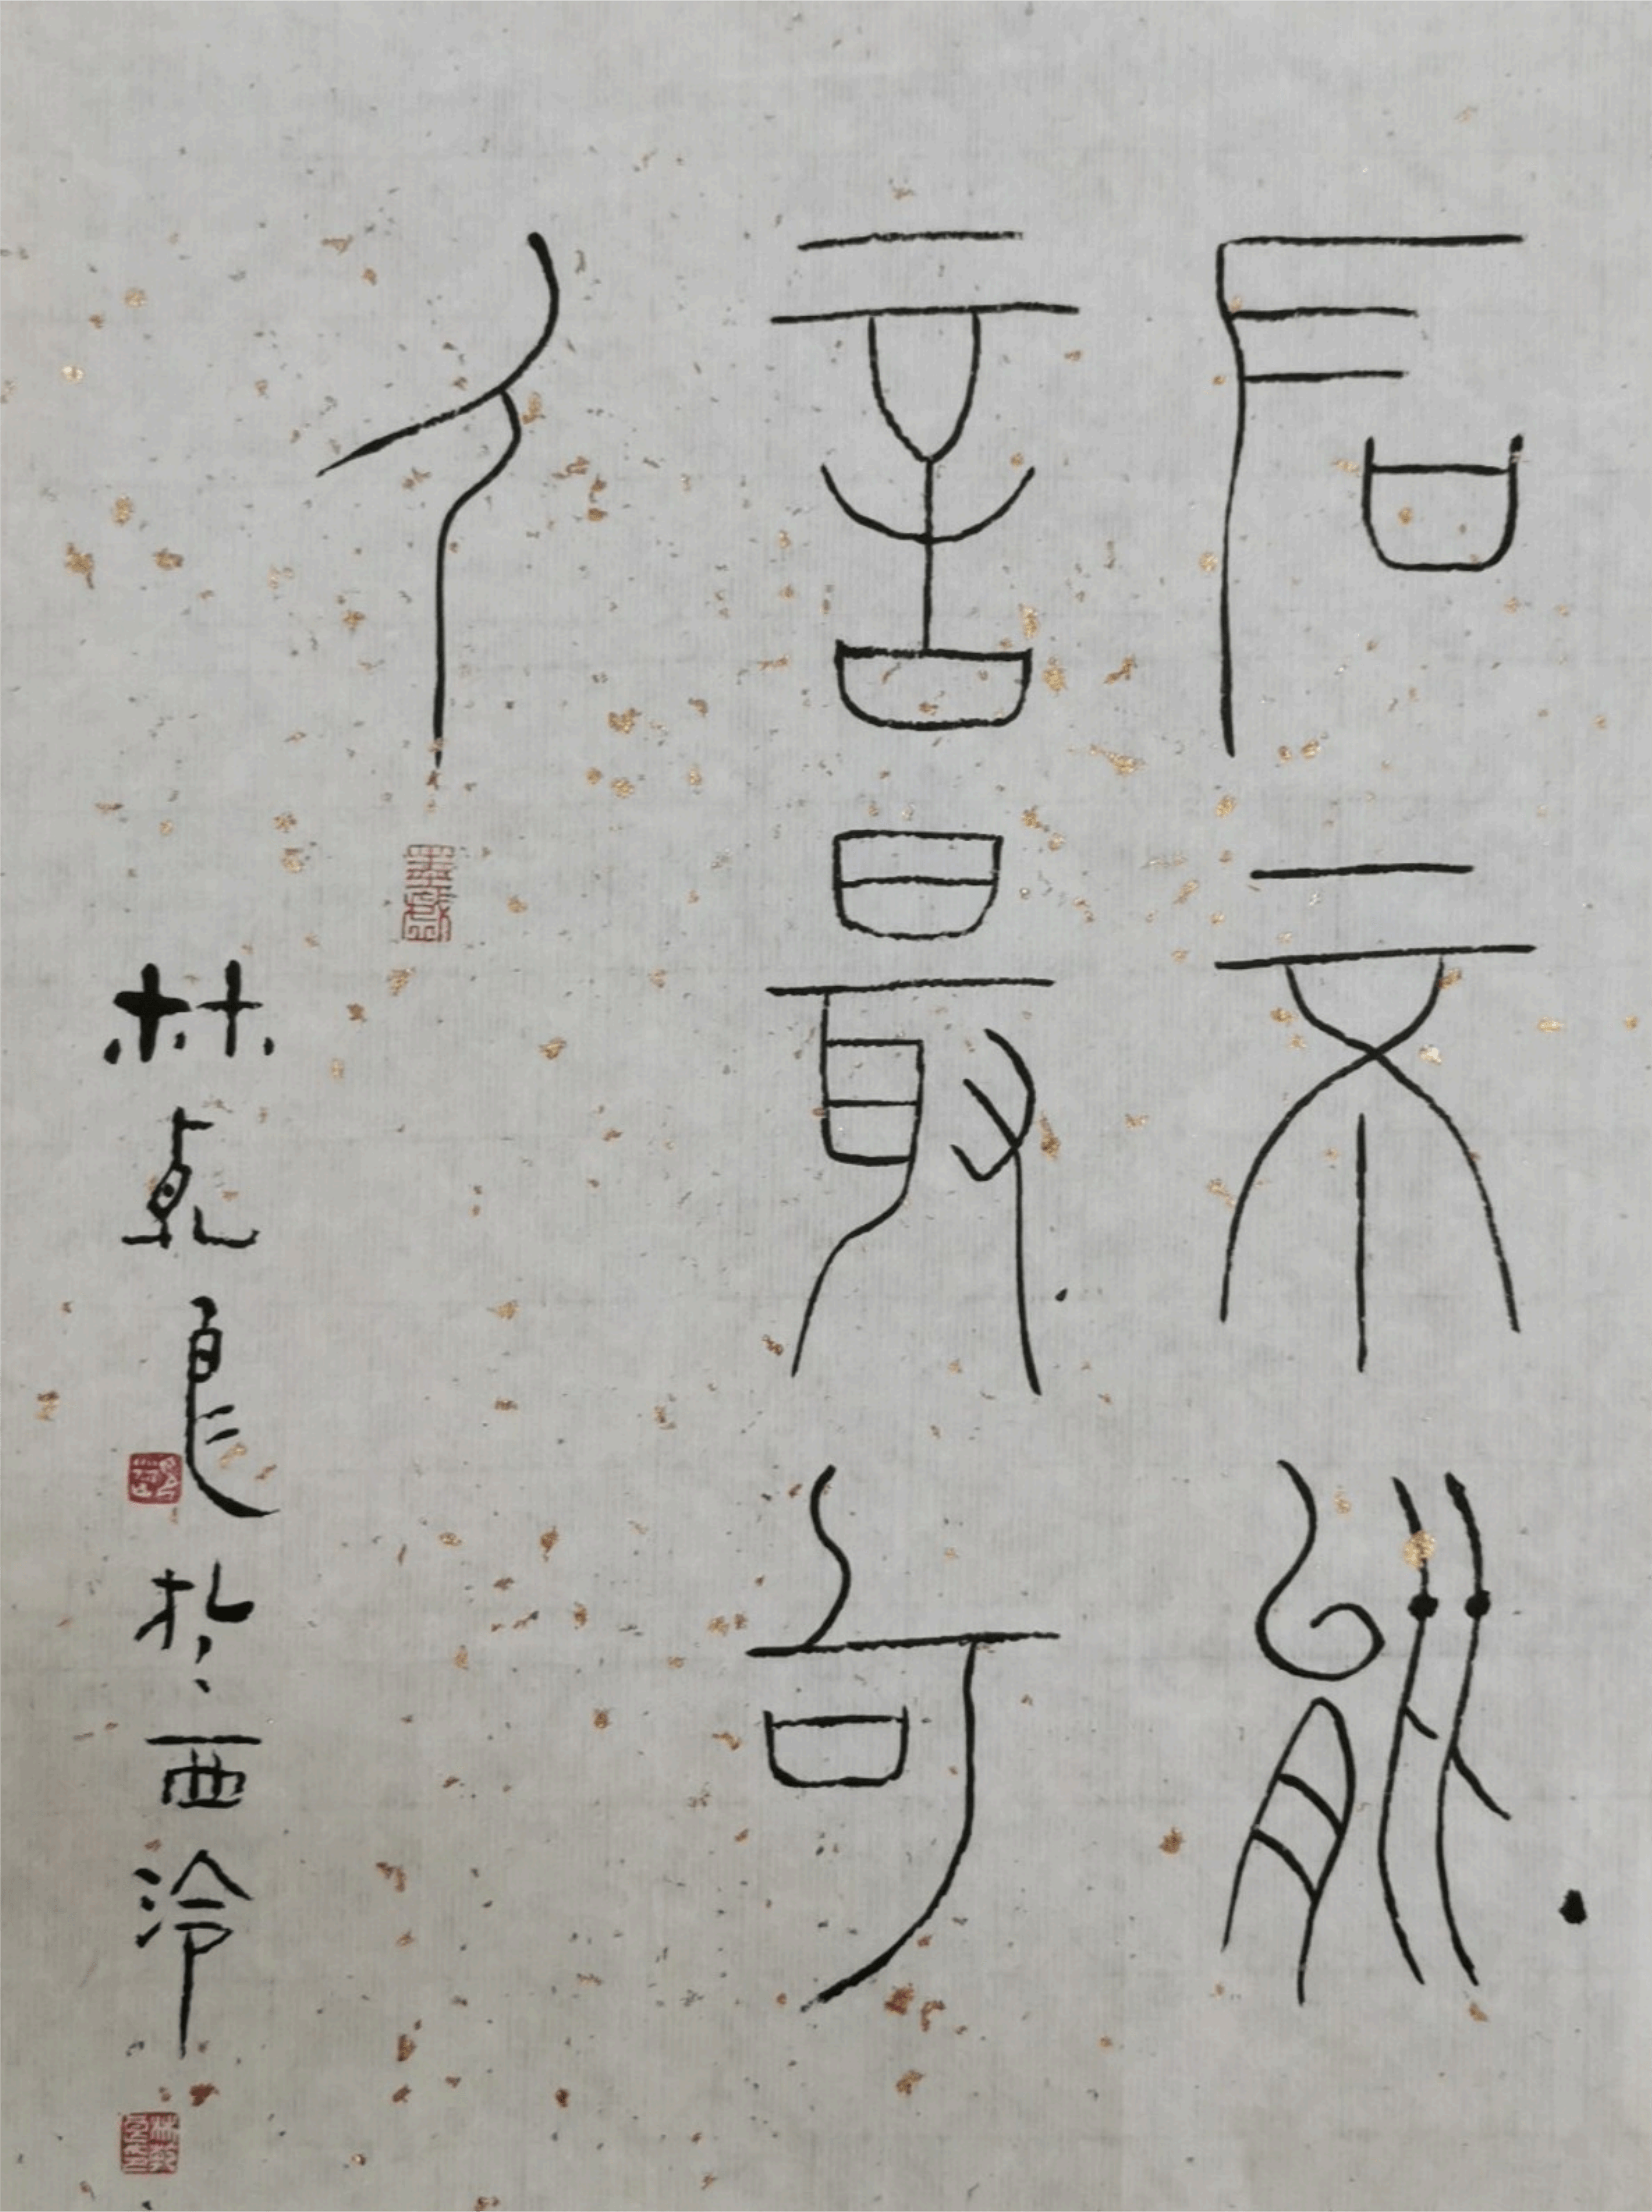 石不能
言最可
人
林乾良於西泠